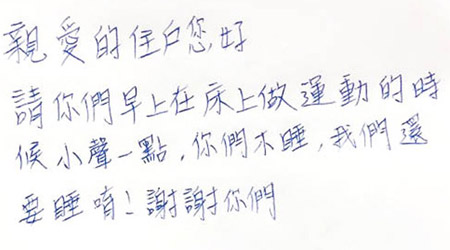 親愛的住戶您好
請你們早上在床上做運動的時
候小聲一點,你們不睡,我們還
要睡唷!謝謝你們